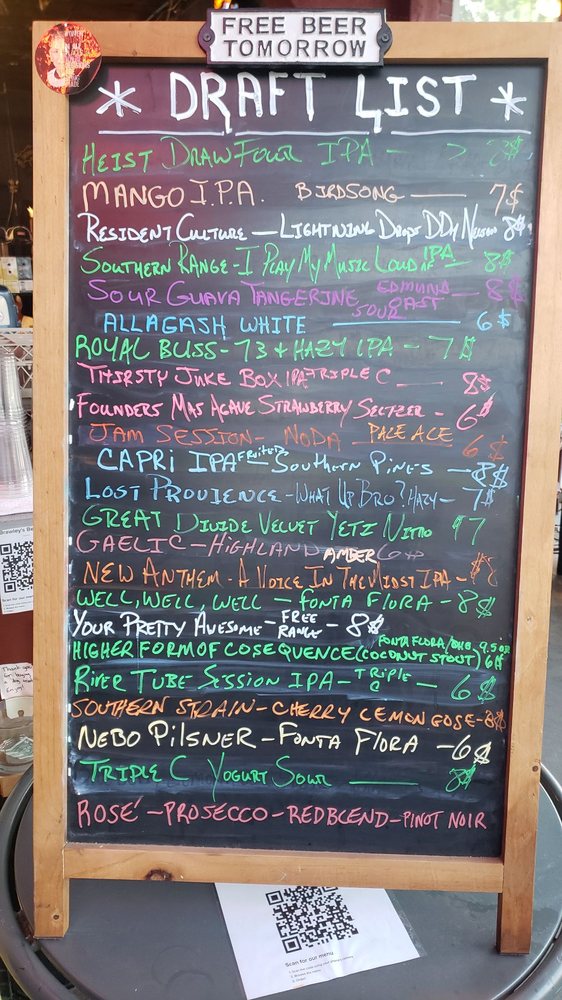 FREE BEER
TOMORROW
* DRAFT LIST *
HEIST DRAW FOUR IPA - 7 8$
MANGO I.P.A. BIRDSONG — 7$
RESIDENT CULTURE - LIGHTNING DROPS DDH NELSON 8$
SOUTHERN RANGE - I PLAY MY MUSIC LOUD IPA — 8$
SOUR GUAVA TANGERINE SOUR EDMUND OAST - 8$
ALLAGASH WHITE — 6$
ROYAL BLISS - 73 & HAZY IPA - 7$
THIRSTY JUKE BOX IPA - TRIPLE C — 8$
FOUNDERS MAS AGAVE STRAWBERRY SELTZER - 6$
JAM SESSION - NODA PALE ALE 6$
CAPRI IPA FRUITED - SOUTHERN PINES - 8$
LOST PROVIENCE - WHAT UP BRO? HAZY - 7$
GREAT DIVIDE VELVET YETI NITRO $7
GAELIC - HIGHLAND AMBER 6$
NEW ANTHEM - A VOICE IN THE MIDST IPA - $8
WELL, WELL, WELL - FONTA FLORA - 8$
YOUR PRETTY AWESOME - FREE RANGE - 8$
HIGHER FORM OF COSEQUENCE (COCONUT STOUT) FONTA FLORA/ 9.5oz 6$
RIVER TUBE SESSION IPA - TRIPLE C - 6$
SOUTHERN STRAIN - CHERRY LEMON GOSE - 8$
NEBO PILSNER - FONTA FLORA - 6$
TRIPLE C YOGURT SOUR — 8$
ROSÉ - PROSECCO - RED BLEND - PINOT NOIR
Scan for our menu